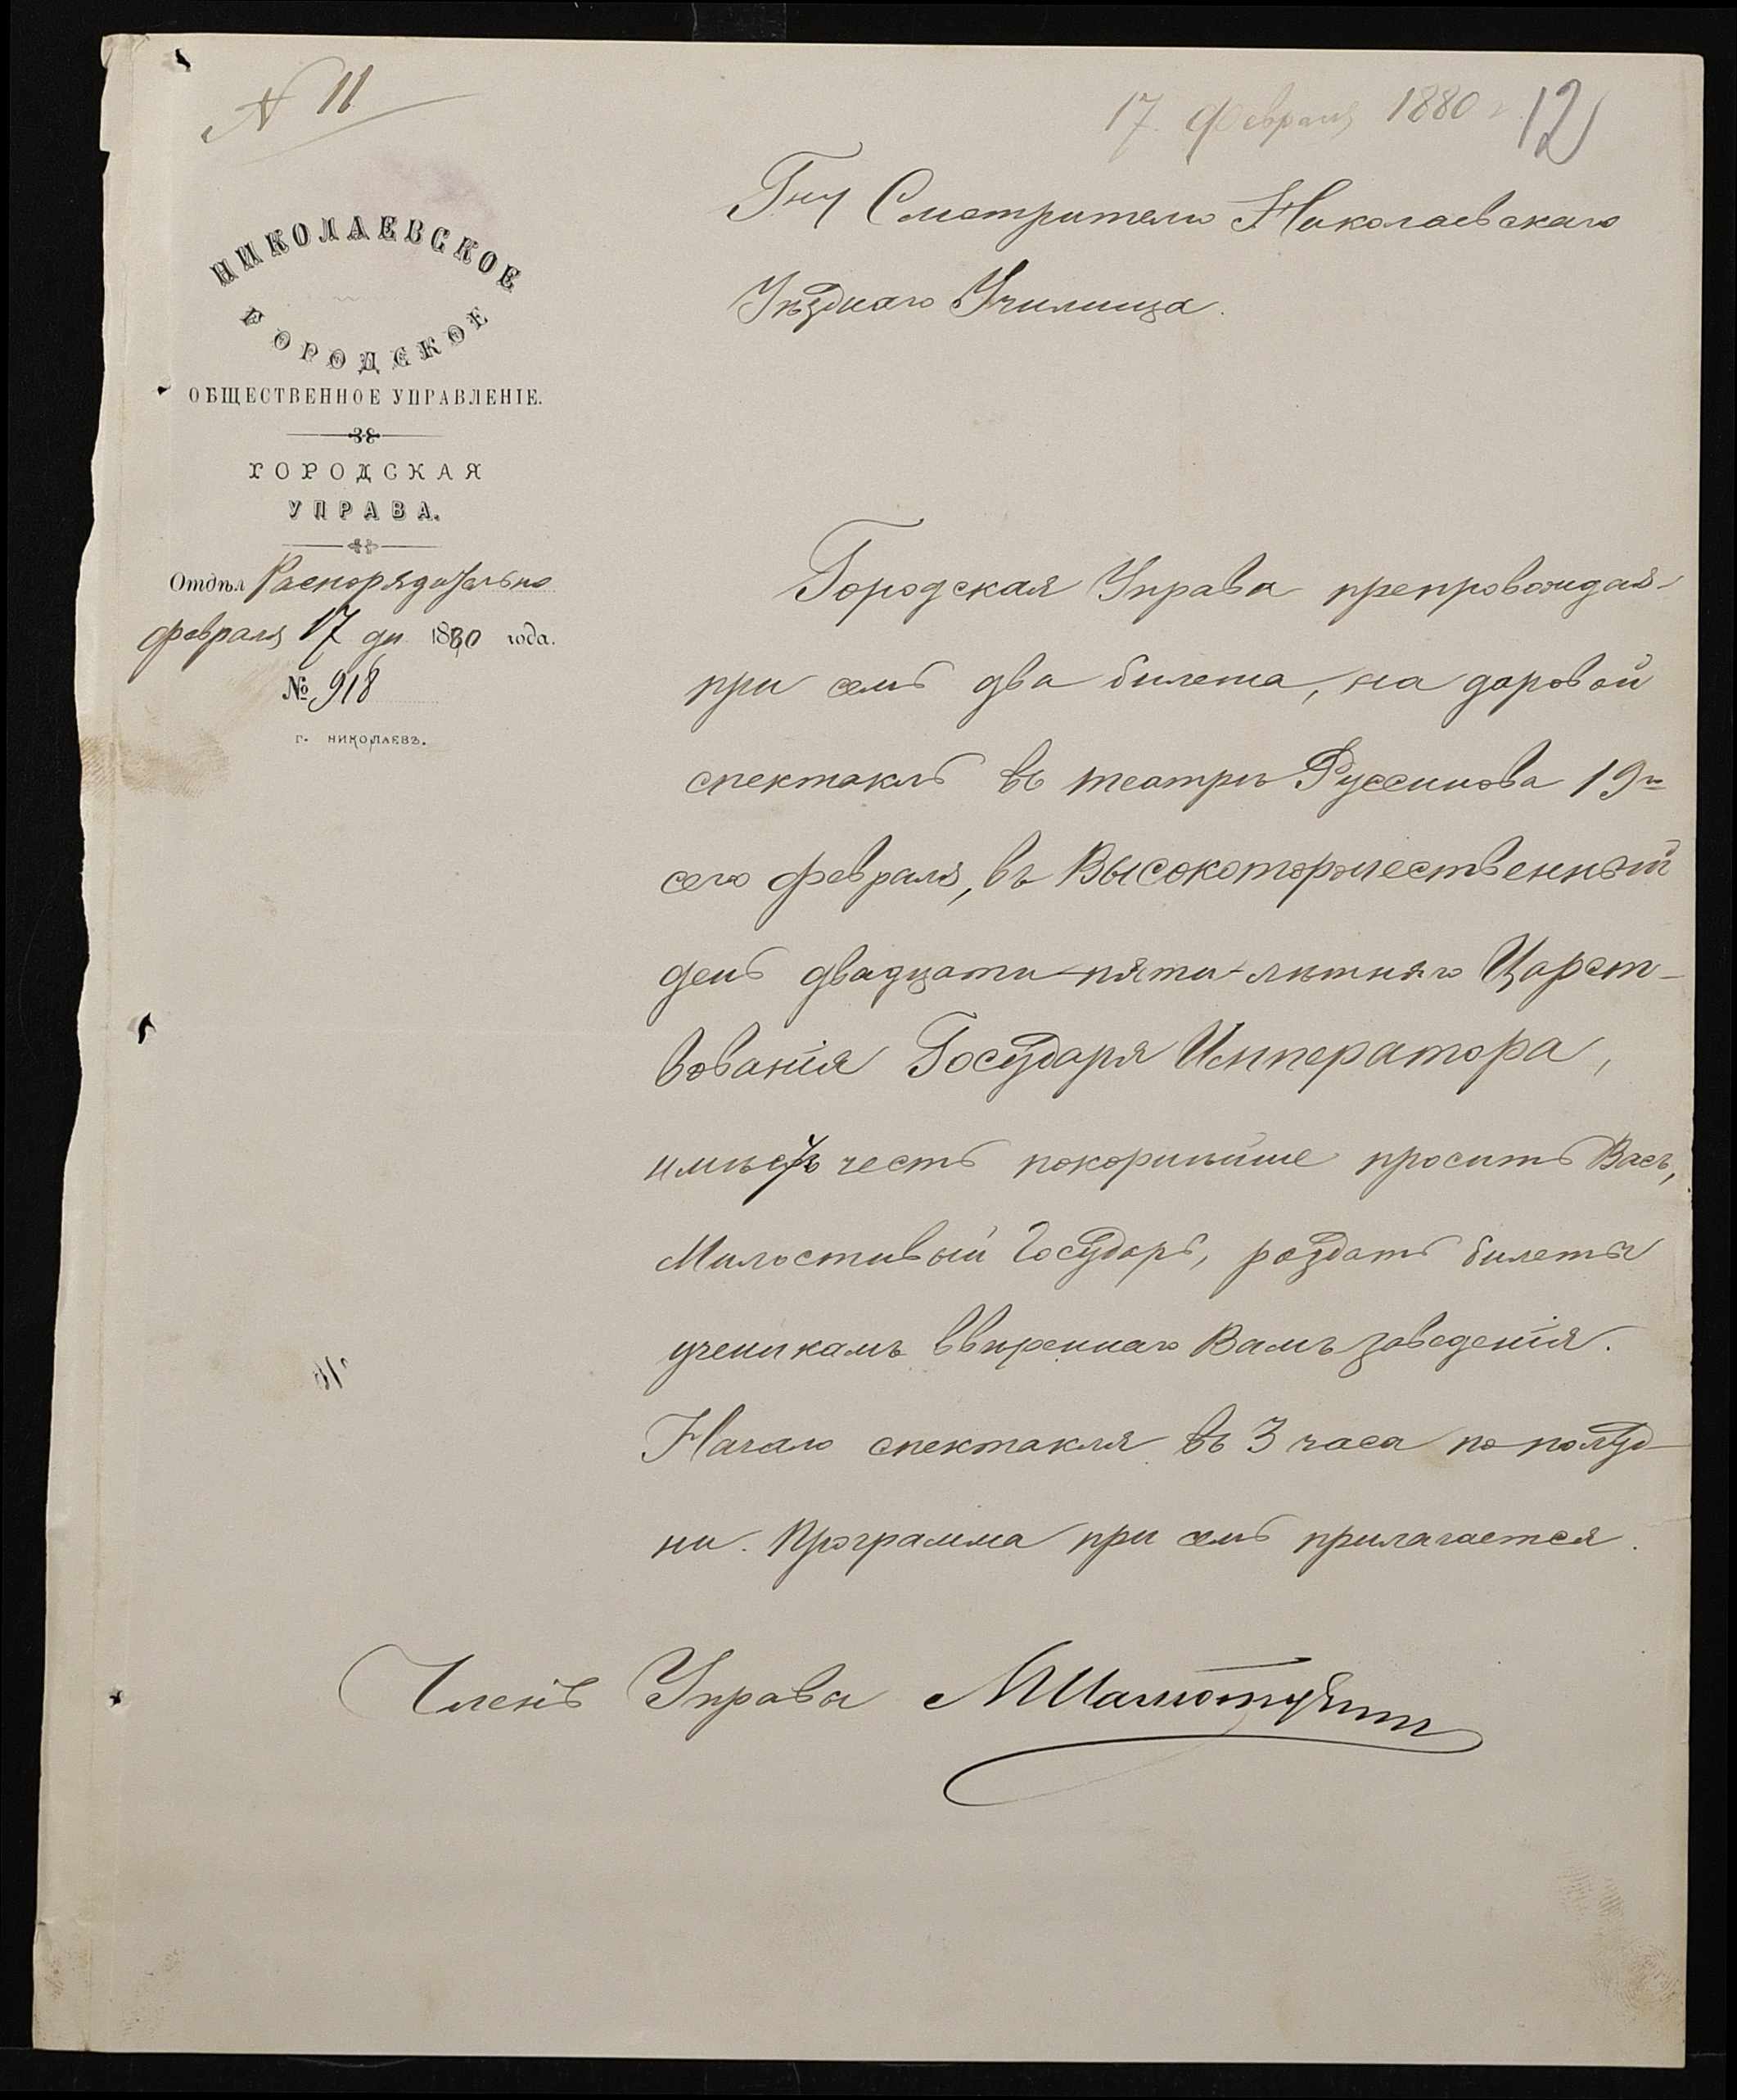 № 11
17 февраля 1880 г. 12
НИКОЛАЕВСКОЕ
ГОРОДСКОЕ
ОБЩЕСТВЕННОЕ УПРАВЛЕНІЕ.
ГОРОДСКАЯ
УПРАВА.
Отдѣл Распорядительно
февраля 17 дн 1880 года.
№ 918
г. НИКОЛАЕВЪ.
Гну Смотрителю Николаевскаго
Уѣзднаго Училища.
Городская Управа препровождая
при семъ два билета, на даровой
спектакль въ театрѣ Руссинова 19го
сего февраля, въ Высокоторжественный
день двадцати-пяти-лѣтняго Царст-
вованія Государя Императора,
имѣетъ честь покорнѣйше просить Васъ,
Милостивый Государь, раздать билеты
ученикамъ ввѣреннаго Вамъ заведенія.
Начало спектакля въ 3 часа по полуд-
ни. Программа при семъ прилагается.
Членъ Управы